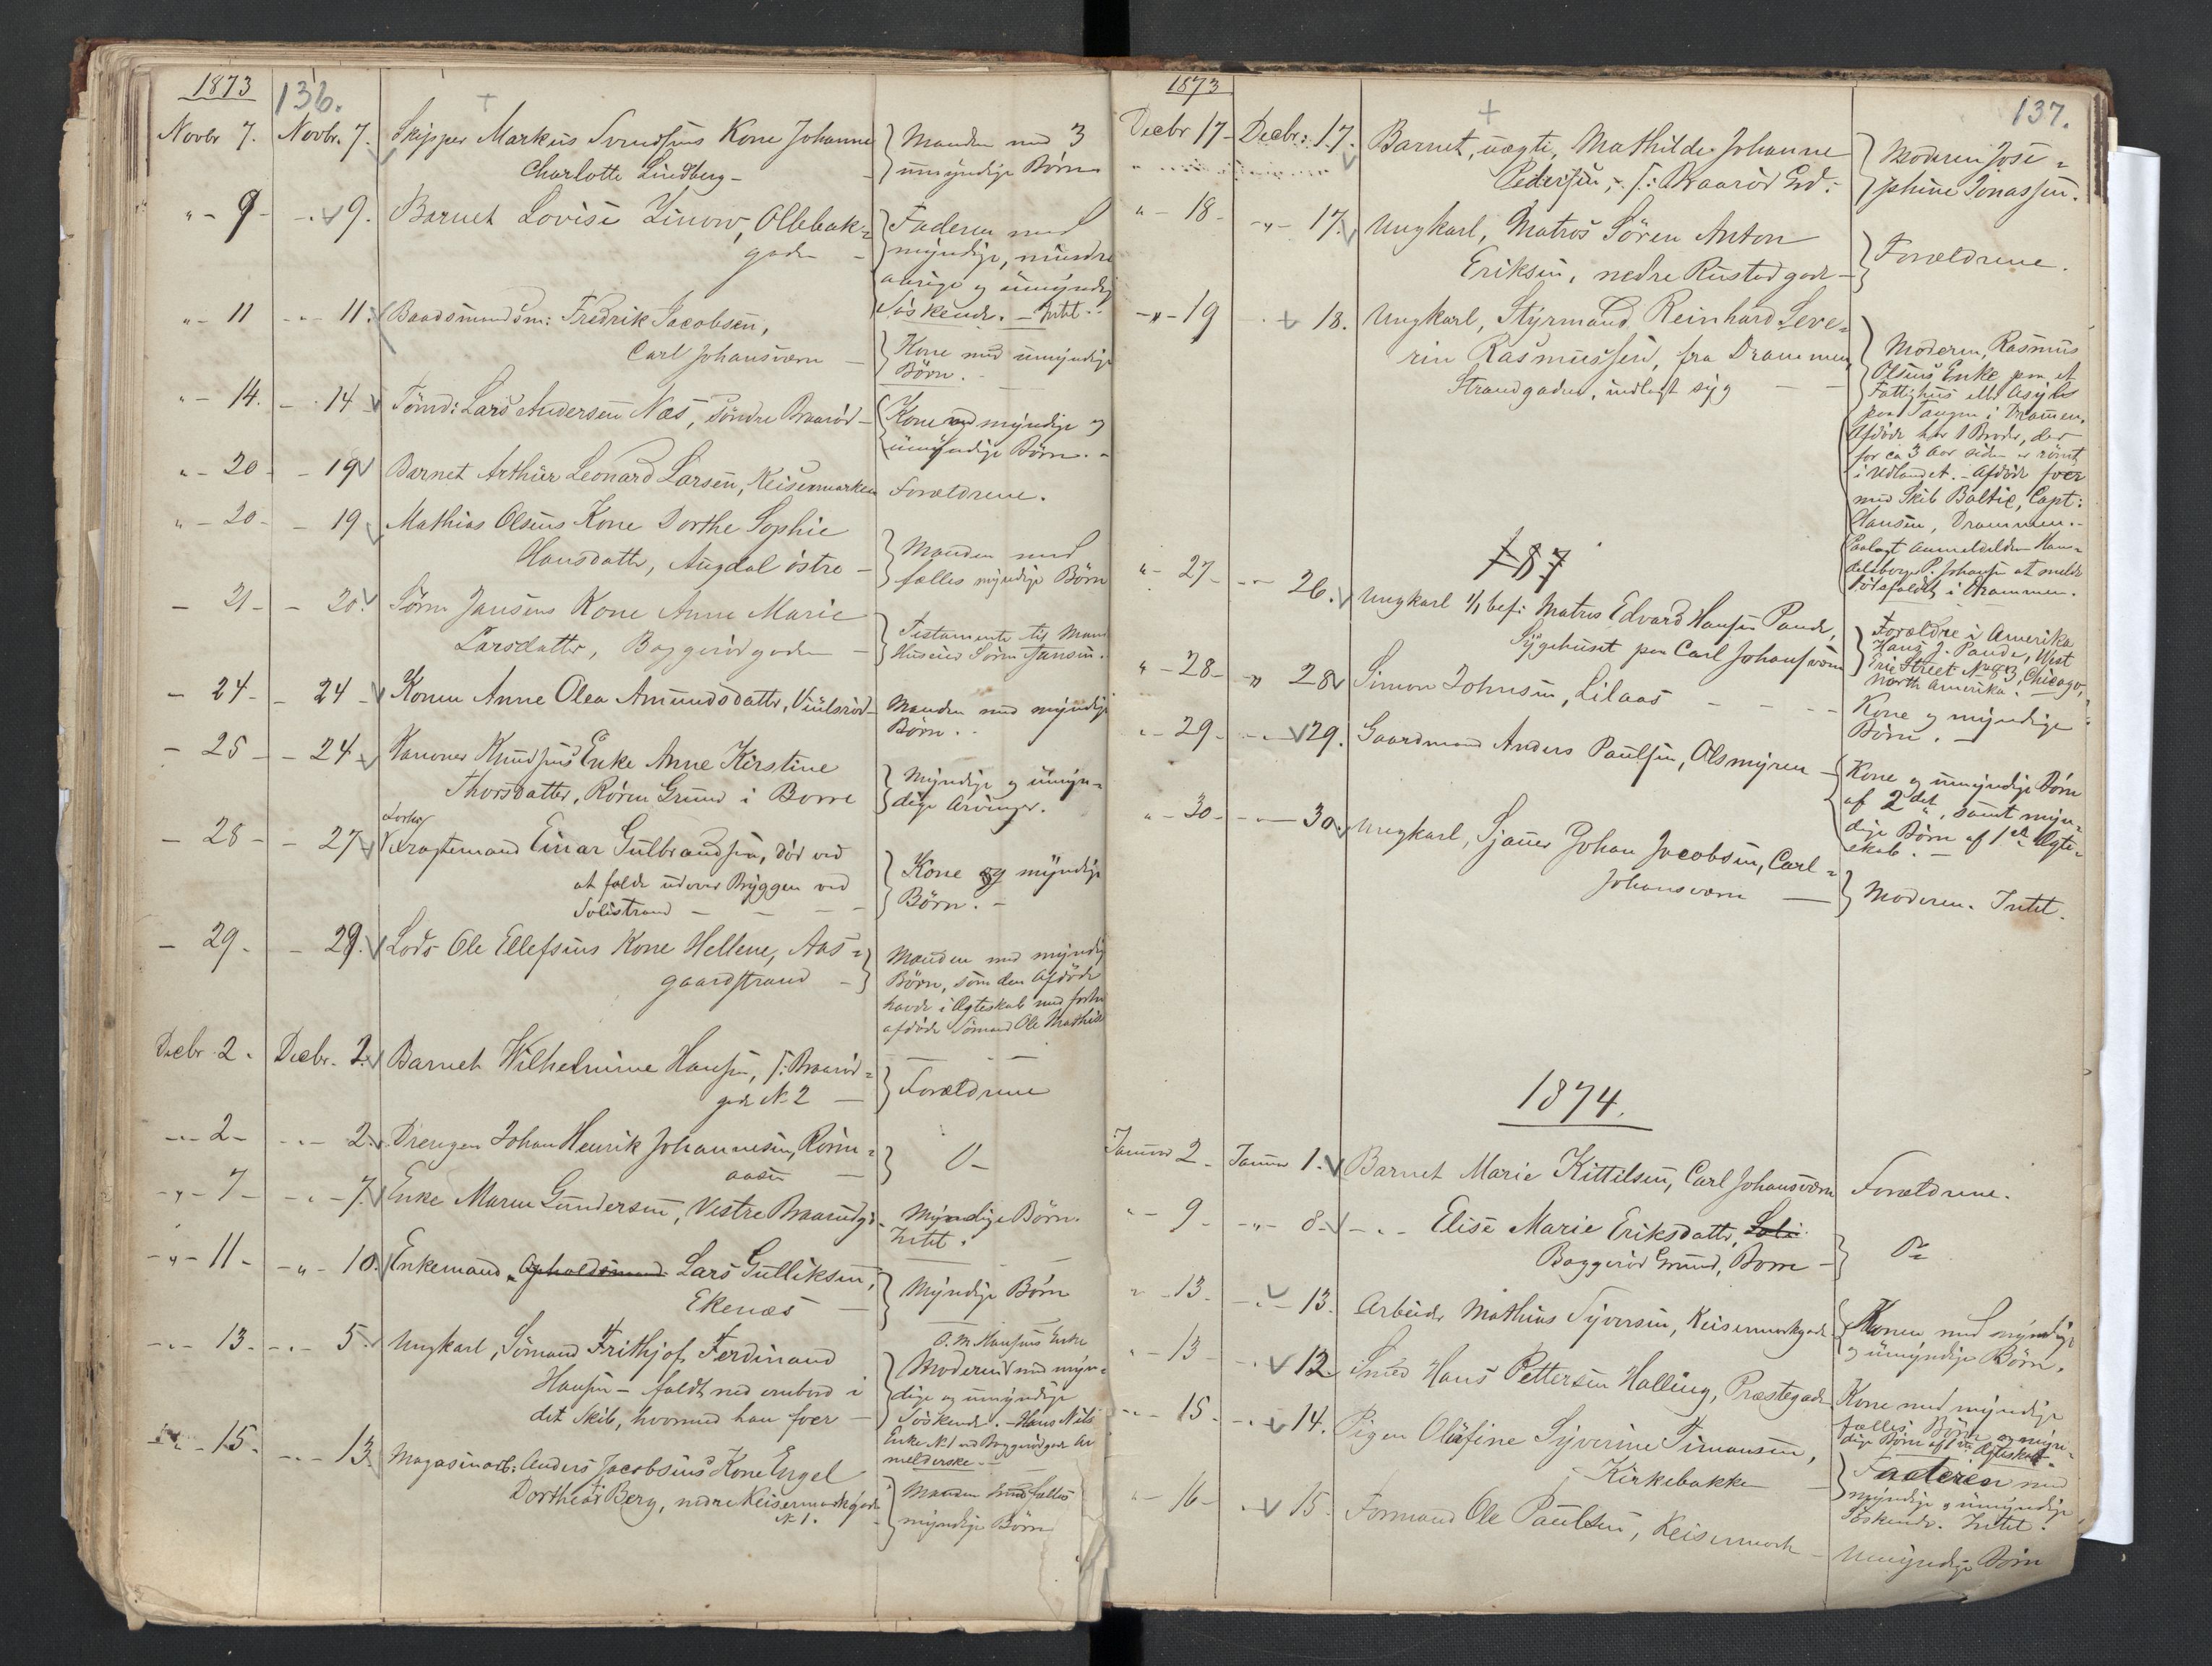 1873
136.
Novbr 7. Novbr. 7. Skipper Markus Svendsens Kone Johanne
Charlotte Lindberg -
Manden med 3
umyndige Børn
" - 9 - - " - 9. Barnet Lovise Linow, Ollebak-
gaden -
Faderen med
myndige, mindre
aarige og umyndig
Søskende. - Intet. -
" - 11 - " - 11. Baadsmandsm: Fredrik Jacobsen,
Carl Johansværn -
Kone med umyndige
Børn. -
" - 14. - 14 Tømd: Lars Andersen Næs, søndre Braarød -
Kone med myndige og
umyndige Børn. -
" - 20 - - 19 Barnet Arthur Leonard Larsen, Keisermarken
Forældrene.
" - 20 - - 19 Mathias Olsens Kone Dorthe Sophie
Hansdatter, Augdal østre -
Manden med
fælles myndige Børn
- 21 - - 20. Søren Jansens Kone Anne Marie
Larsdatter, Baggerødgaden -
Testamente til Mand
Huseier Søren Jansen.
- 24 - - 24 - Konen Anne Olea Amundsdatter, Viulsrød -
Manden med myndige
Børn. -
- 25 - - 24 Kanoner Knudsens Enke Anne Kirstine
Thorsdatter, Røren Grund i Borre
Myndige og umyn-
dige Arvinger.
- 28 - - 27 Fragtemand Einar Gulbrandsen, død ved
at falde udover Bryggen ved
Solistrand - - -
Kone og myndige
Børn. -
- 29. - 29. Lods Ole Ellefsens Kone Hellene, Aas-
gaardstrand -
Manden med myndig
Børn, som den Afdøde
havde i Ægteskab med forhen
afdøde Sømand Ole Mathis
Decbr 2. Decbr. 2. Barnet Wilhelmine Hansen, s: Braarød-
gade No 2 -
Forældrene
- " - 2 - - " - 2. Drengen Johan Henrik Johannesen, Røren-
aasen -
O -
- " - 7 - - " - 7. Enke Maren Gundersen, Vestre Braarødgd -
Myndige Børn.
Intet.
- " - 11 - - " - 10. Enkemand, Opholdsmand Lars Gulliksen,
Ekenæs -
Myndige Børn
- " - 13. - " - 5. Ungkarl, Sømand Frithjof Ferdinand
Hansen - faldt ned ombord i
det Skib, hvormed han foer -
O. M. Hansens Enke
Moderen med myn-
dige og umyndige
Søskende. - Hans Nils
Enke No 1 ved Baggerødgade An
melderske. -
- 15. - " - 13. Magasinarb: Anders Jacobsens Kone Engel
Dorthea Berg, nedre Keisermarkgade
No 1.
Manden med fælles
myndige Børn
1873
137.
Decbr 17 - Decbr: 17. Barnet, uægte, Mathilde Johanne
Pedersen, s: Braarød Grd. -
Moderen Jose-
phine Jonassen.
" - 18 - - " - 17. Ungkarl, Matros Søren Anton
Eriksen, nedre Rustadgade -
Forældrene.
- " - 19 - 18. Ungkarl, Styrmand Reinhard Seve-
rin Rasmussen, fra Drammen,
Strandgaden, indlagt syg - -
Moderen, Rasmus
Olsens Enke paa et
Fattighus eller Asyl
paa Tangen i Drammen.
Afdøde har 1 Broder, der
for ca 3 Aar siden er rømt
i Udlandet. - Afdøde foer
med Skib Baltic, Capt:
Hansen, Drammen. -
Paalagt Anmelderen Han-
delsborger P. Johansen at melde
Dødsfaldet i Drammen.
187
" - 27 - - " - 26. Ungkarl 1/1 bef: Matros Edvard Hansen Pande,
Sygehuset paa Carl Johansværn
Forældre i Amerika
Hans J. Pande, West
Erie Street No 83, Chicago,
North Amerika.
" - 28 - - " 28 Simon Johnsen, Lilaas - - - -
Kone og myndige
Børn. -
" - 29 - - " - 29. Gaardmand Anders Paulsen, Olsmyren -
Kone og umyndige Børn
af 2det, samt myn-
dige Børn af 1ste Ægte-
skab. -
" - 30 - - " - 30. Ungkarl, Sjauer Johan Jacobsen, Carl-
Johansværn -
Moderen. Intet.
1874.
Januar 2 - Januar 1. Barnet Marie Kittilsen, Carl Johansværn
Forældrene.
" - 9 - - " - 8. - " - Elise Marie Eriksdatter,
Baggerød Grund, Borre -
O -
" - 13. - " - 13. Arbeider Mathias Syversen, Keisermarkgade
Konen med myndige
og umyndige Børn.
" - 13 - " - 12 Smed Hans Pettersen Halling, Præstegade
Kone med myndige
fælles Børn og myn-
dige Børn af 1ste Ægteskab.
- " - 15. - " 14. Pigen Olufine Syverine Simonsen,
Kirkebakke -
Faderen med
myndige og umyndige
Søskende. Intet.
" - 16 - - " 15. Formand Ole Paulsen, Keisermark -
Umyndige Børn